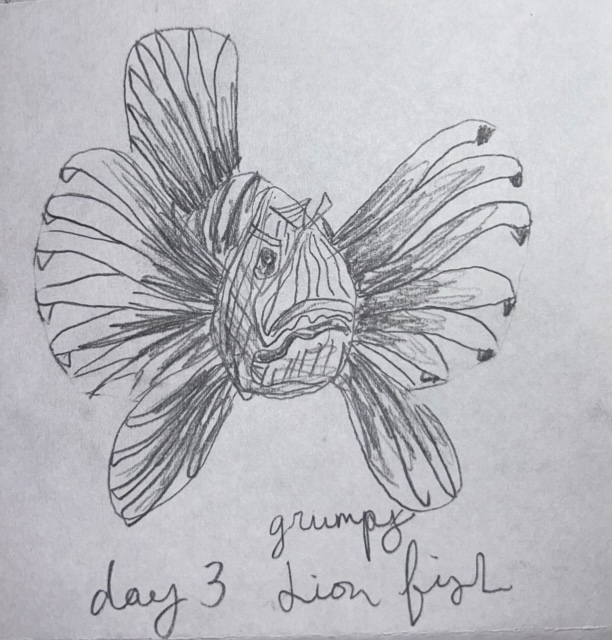 grumpy
day 3 Lion fish